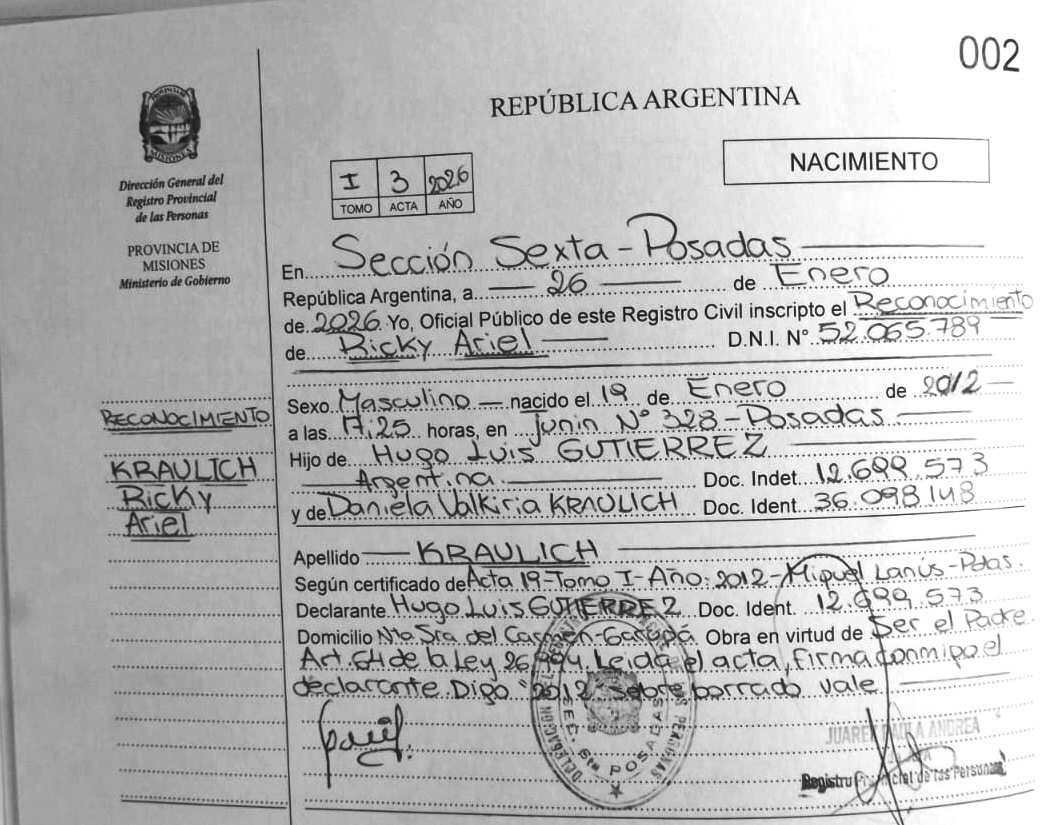 002
REPÚBLICA ARGENTINA
NACIMIENTO
PROVINCIA DE MISIONES
Dirección General del
Registro Provincial
de las Personas
PROVINCIA DE
MISIONES
Ministerio de Gobierno
I 3 2026
TOMO ACTA AÑO
En Sección Sexta - Posadas
República Argentina, a 26 de Enero
de 2026 Yo, Oficial Público de este Registro Civil inscripto el Reconocimiento
de Ricky Ariel D.N.I. N° 52.065.789
Sexo Masculino nacido el 19 de Enero de 2012
a las 17,25 horas, en Junin N° 328 - Posadas
Hijo de Hugo Luis GUTIERREZ
Argentina Doc. Indet 12.699.573
y de Daniela Valkiria KRAULICH Doc. Ident 36.098.148
RECONOCIMIENTO
KRAULICH
Ricky
Ariel
Apellido KRAULICH
Según certificado de Acta 19-Tomo I-Año: 2012-Miguel Lanús-Pdas.
Declarante Hugo Luis GUTIERREZ Doc. Ident. 12.699.573
Domicilio Ntra Sra del Carmen-Garupá Obra en virtud de Ser el Padre
Art. 64 de la Ley 26.994. Leida el acta, Firma conmigo el
declarante Digo "2012" sobre borrado vale
SEC 6ta POSADAS
JUAREZ PAOLA ANDREA
Registro Provincial de las Personas